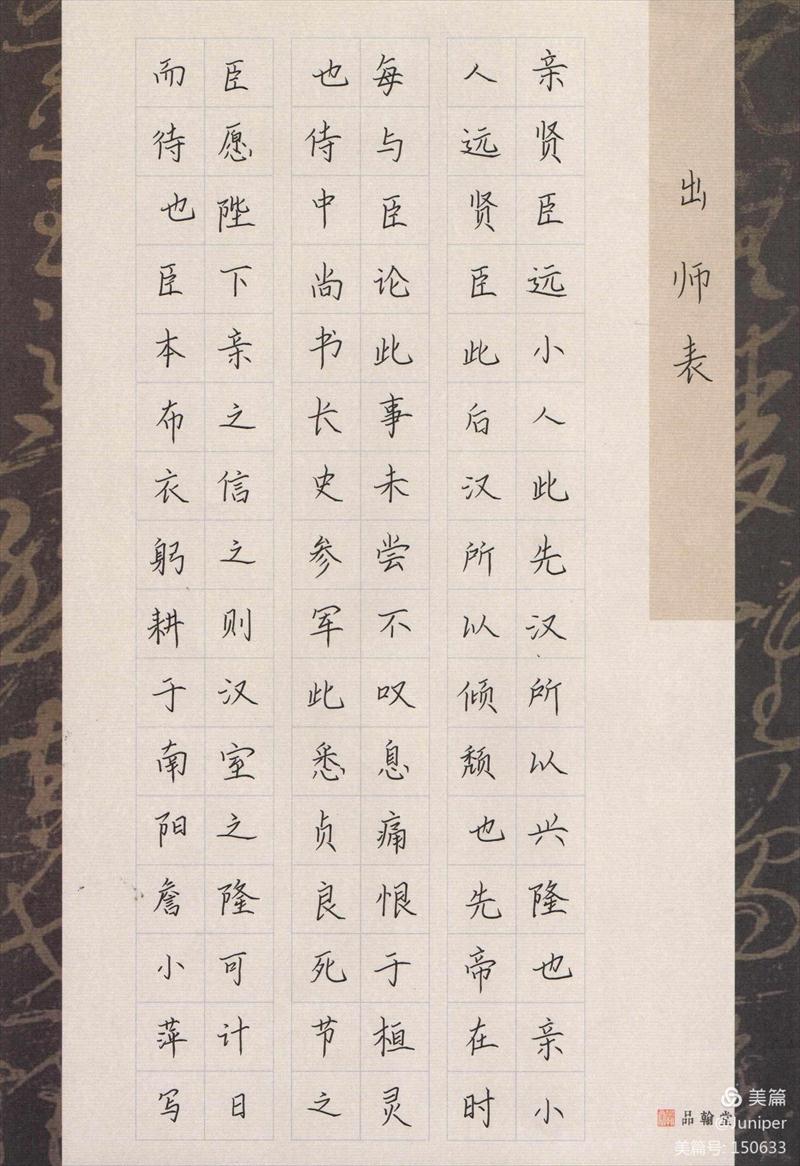 出师表
亲贤臣远小人此先汉所以兴隆也亲小
人远贤臣此后汉所以倾颓也先帝在时
每与臣论此事未尝不叹息痛恨于桓灵
也侍中尚书长史参军此悉贞良死节之
臣愿陛下亲之信之则汉室之隆可计日
而待也臣本布衣躬耕于南阳詹小萍写
品翰堂
美篇
@Juniper
美篇号: 150633